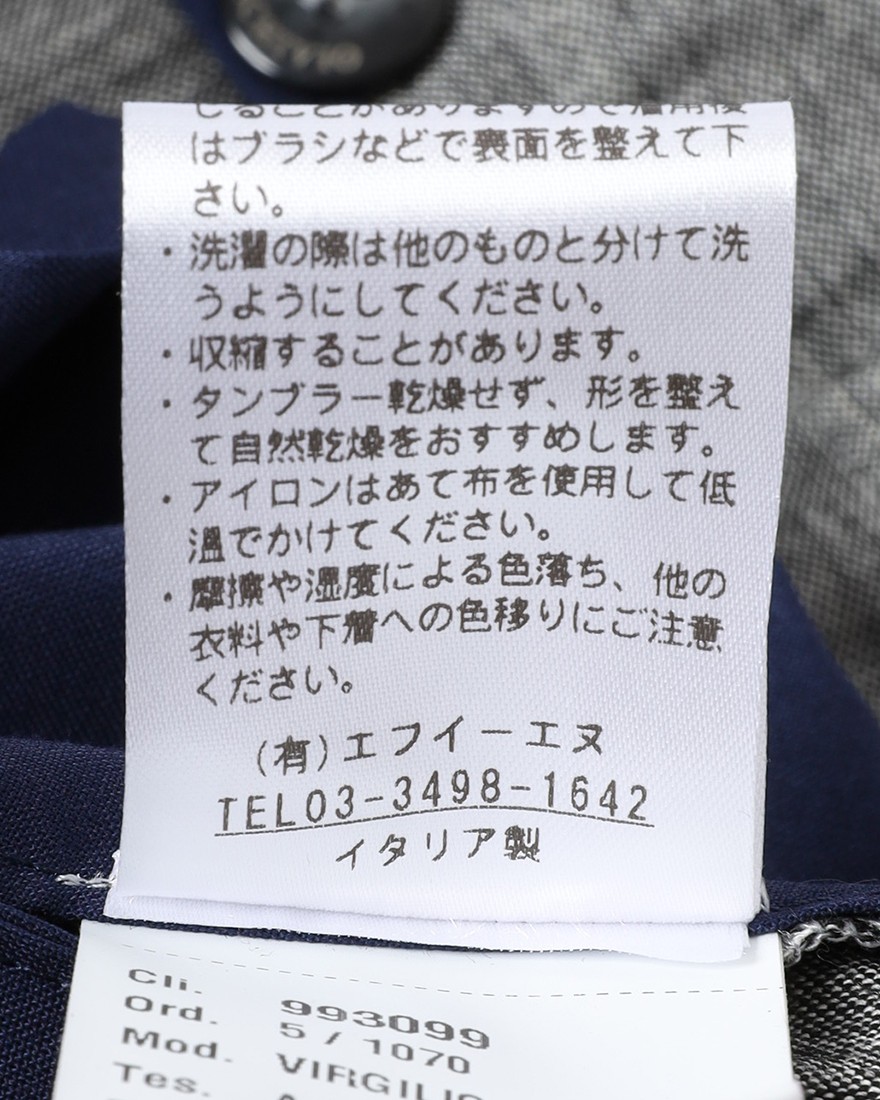 じることがありますので着用後
はブラシなどで表面を整えて下
さい。
・洗濯の際は他のものと分けて洗
うようにしてください。
・収縮することがあります。
・タンブラー乾燥せず、形を整え
て自然乾燥をおすすめします。
・アイロンはあて布を使用して低
温でかけてください。
・摩擦や湿度による色落ち、他の
衣料や下着への色移りにご注意
ください。
(有)エフイーエヌ
TEL03-3498-1642
イタリア製
Cli. 993099
Ord. 5 / 1070
Mod. VIRGILIO
Tes.